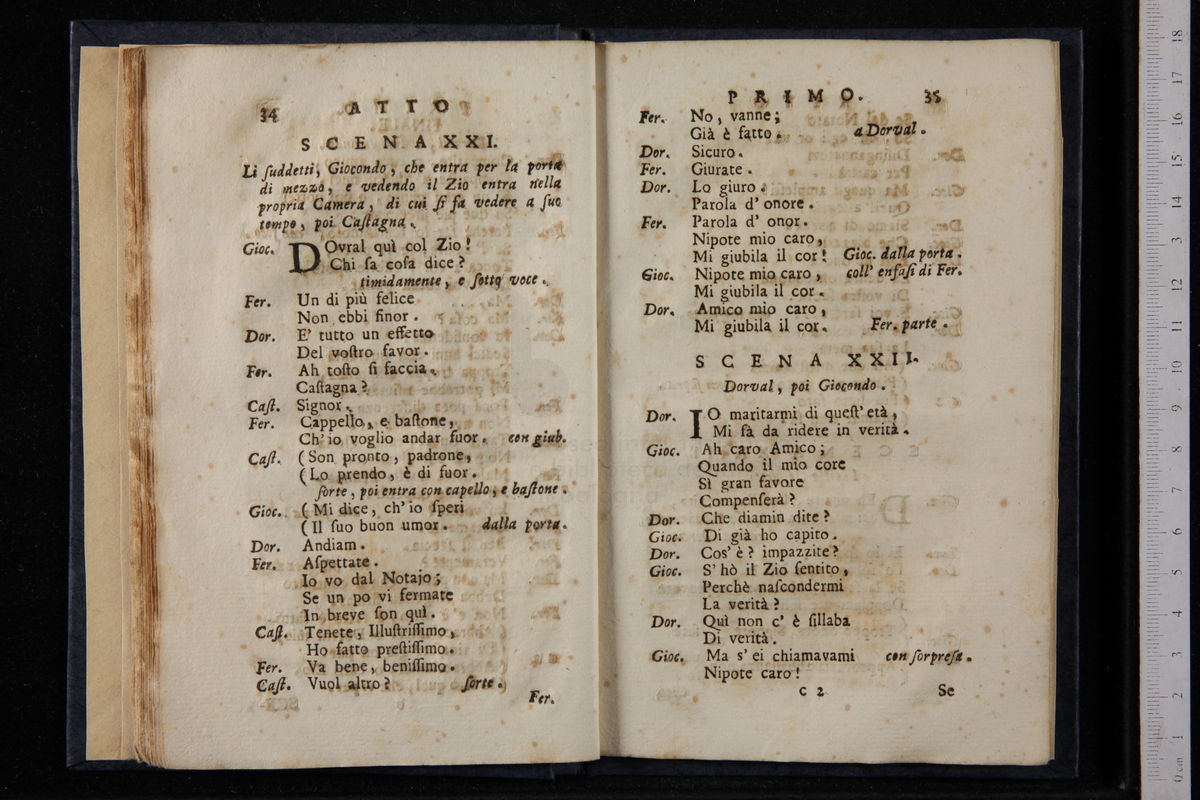 34 ATTO
SCENA XXI.
Li ſuddetti, Giocondo, che entra per la porta
di mezzo, e vedendo il Zio entra nella
propria Camera, di cui ſi fa vedere a ſuo
tempo, poi Caſtagna.
Gioc. DOvral quì col Zio!
Chi ſa coſa dice?
timidamente, e ſotto voce.
Fer. Un di più felice
Non ebbi finor.
Dor. E' tutto un effetto
Del voſtro favor.
Fer. Ah toſto ſi faccia.
Caſtagna?
Caſt. Signor.
Fer. Cappello, e baſtone,
Ch' io voglio andar fuor. con giub.
Caſt. (Son pronto, padrone,
(Lo prendo, è di fuor.
forte, poi entra con capello, e baſtone.
Gioc. (Mi dice, ch' io ſperi
(Il ſuo buon umor. dalla porta.
Dor. Andiam.
Fer. Aſpettate.
Io vo dal Notajo;
Se un po vi fermate
In breve ſon quì.
Caſt. Tenete, Illuſtriſſimo,
Ho fatto preſtiſſimo.
Fer. Va bene, beniſſimo.
Caſt. Vuol altro? forte.
Fer.
PRIMO. 35
Fer. No, vanne;
Già è fatto. a Dorval.
Dor. Sicuro.
Fer. Giurate.
Dor. Lo giuro.
Parola d' onore.
Fer. Parola d' onor.
Nipote mio caro,
Mi giubila il cor! Gioc. dalla porta.
Gioc. Nipote mio caro, coll' enfaſi di Fer.
Mi giubila il cor.
Dor. Amico mio caro,
Mi giubila il cor. Fer. parte.
SCENA XXII.
Dorval, poi Giocondo.
Dor. IO maritarmi di queſt' età,
Mi fà da ridere in verità.
Gioc. Ah caro Amico;
Quando il mio core
Sì gran favore
Compenſerà?
Dor. Che diamin dite?
Gioc. Di già ho capito.
Dor. Cos' è? impazzite?
Gioc. S' hò il Zio ſentito,
Perchè naſcondermi
La verità?
Dor. Quì non c' è ſillaba
Di verità.
Gioc. Ma s' ei chiamavami con ſorpreſa.
Nipote caro!
C 2 Se